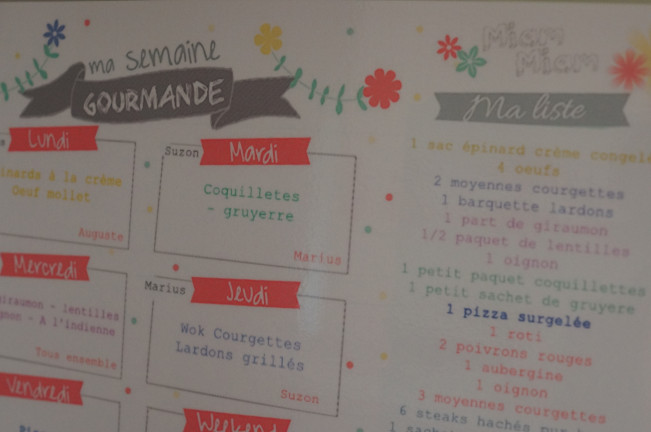 ma semaine
GOURMANDE
Lundi
à la crème
Oeuf mollet
Auguste
Suzon
Mardi
Coquilletes
- gruyerre
Marius
Mercredi
giraumon - lentilles
- A l'indienne
Tous ensemble
Marius
Jeudi
Wok Courgettes
Lardons grillés
Suzon
Vendredi
Weekend
Miam
Miam
Ma liste
1 sac épinard crème
4 oeufs
2 moyennes courgettes
1 barquette lardons
1 part de giraumon
1/2 paquet de lentilles
1 oignon
1 petit paquet coquillettes
1 petit sachet de gruyere
1 pizza surgelée
1 roti
2 poivrons rouges
1 aubergine
1 oignon
3 moyennes courgettes
6 steaks hachés
1